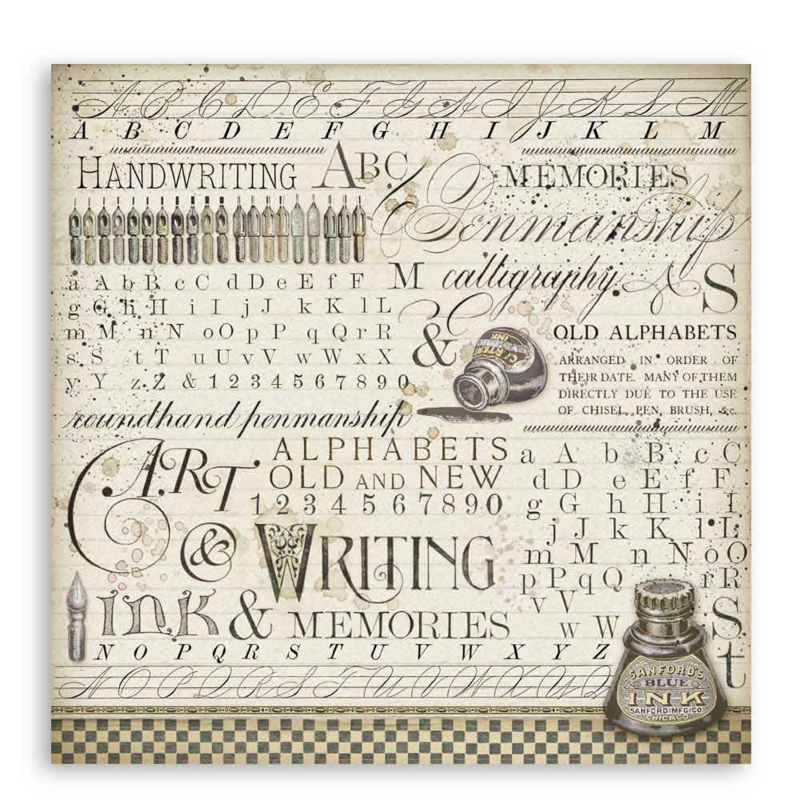 A B C D E F G H I J K L M
A B C D E F G H I J K L M
HANDWRITING ABC MEMORIES
Penmanship
a A b B c C d D e E f F M calligraphy A S
g G h H i I j J k K l L
m M n N o O p P q Q r R & CARTER'S INK OLD ALPHABETS
s S t T u U v V w W x X ARRANGED IN ORDER OF
y Y z Z & 1 2 3 4 5 6 7 8 9 0 THEIR DATE. MANY OF THEM
DIRECTLY DUE TO THE USE
OF CHISEL, PEN, BRUSH, &c.
roundhand penmanship
ART ALPHABETS a A b B c C
OLD AND NEW d D e E f F
1 2 3 4 5 6 7 8 9 0 g G h H i I
& WRITING j J k K l L
m M n N o O
p P q Q r R
ink & MEMORIES v V S
w W
N O P Q R S T U V W X Y Z t
N O P Q R S T U V W X
SANFORD'S
BLUE
INK
SANFORD MFG CO
CHICAGO